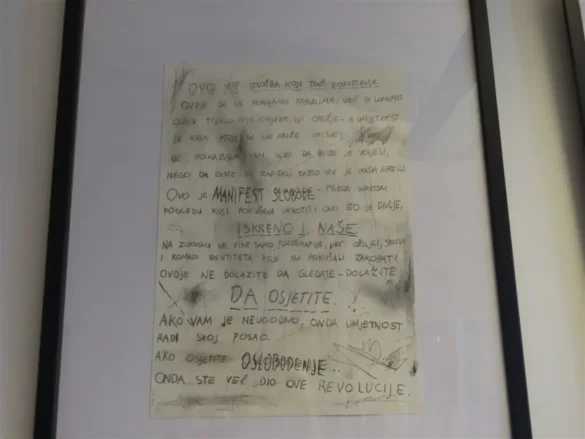 OVO NIJE IZLOŽBA KOJA TRAŽI DOPUŠTENJE.
OVDJE SE NE KLANJAMO PRAVILIMA, VEĆ IH LOMIMO
OVDJE TIJELO NIJE OBJEKT, VEĆ ORUŽJE - A UMJETNOST
JE KOJA SE NE MOŽE
NE POKAZUJEM VAM DA BISTE JE VOLJELI,
NEGO DA BISTE SE ZAPITALI ZAŠTO STE JE IKADA MRZILI.
OVO JE MANIFEST SLOBODE - PRKOS SVAKOM
POGLEDU KOJI POKUŠAVA UKROTITI ONO ŠTO JE DIVLJE,
ISKRENO I NAŠE
NA ZIDOVIMA NE VISE SAMO FOTOGRAFIJE, VEĆ OŽILJCI,
I KOMADI IDENTITETA KOJE SU POKUŠALI ZAKOPATI
OVDJE NE DOLAZITE DA GLEDATE - DOLAZITE
DA OSJETITE.
AKO VAM JE NEUGODNO, ONDA UMJETNOST
RADI SVOJ POSAO.
AKO OSJETITE OSLOBOĐENJE...
ONDA STE VEĆ DIO OVE REVOLUCIJE.